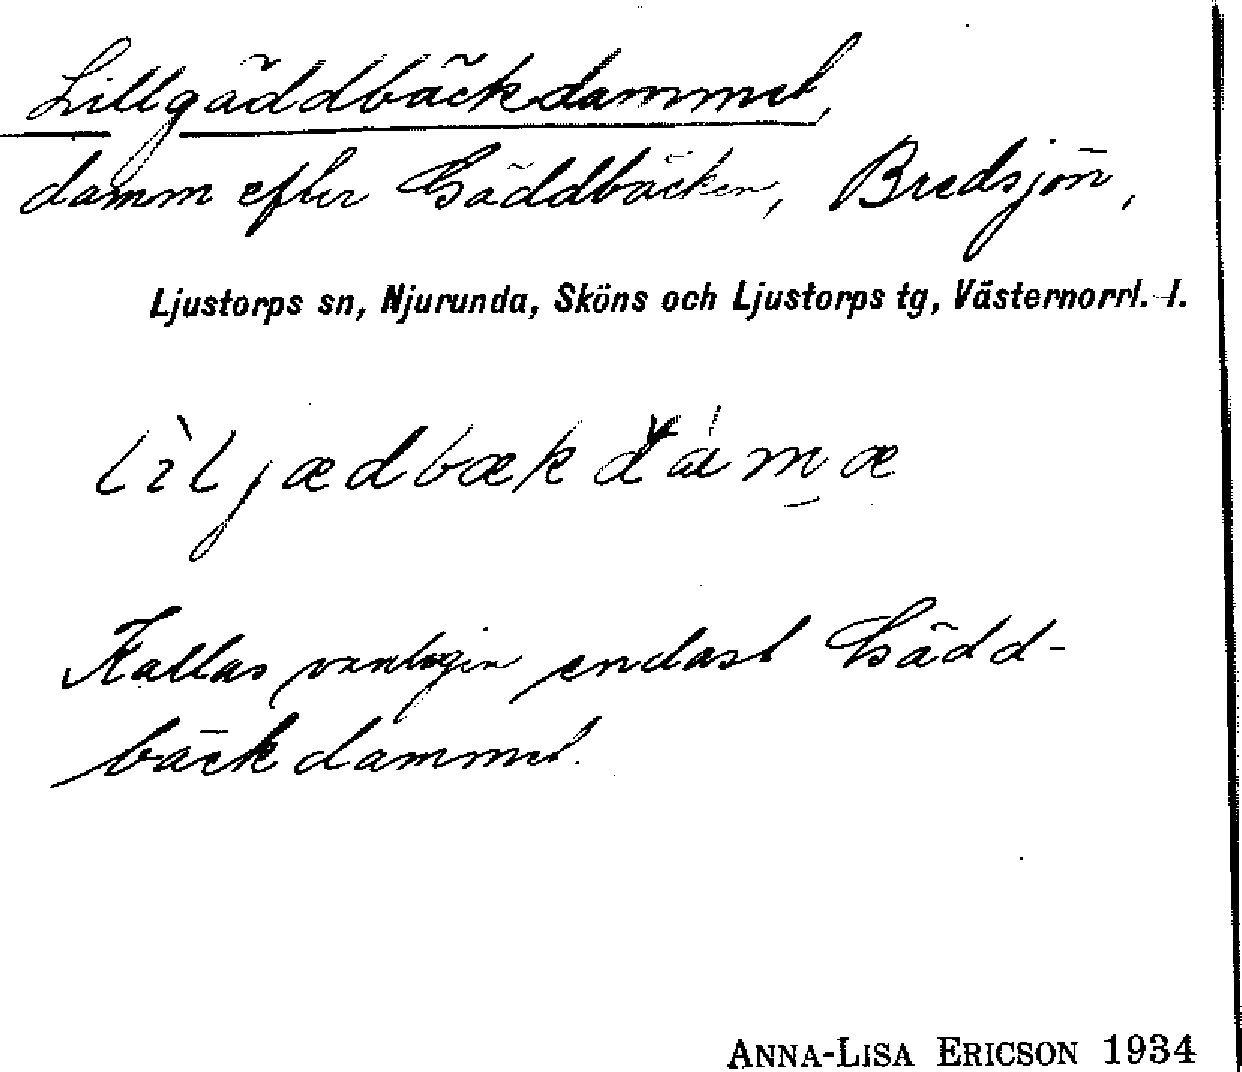 Lillgäddbäckdammet,
damm efter Gäddbäcken, Bredsjön,
Ljustorps sn, Njurunda, Sköns och Ljustorps tg, Västernorrl. l.
Kallas vanligen endast Gädd-
bäckdammet.
ANNA-LISA ERICSON 1934